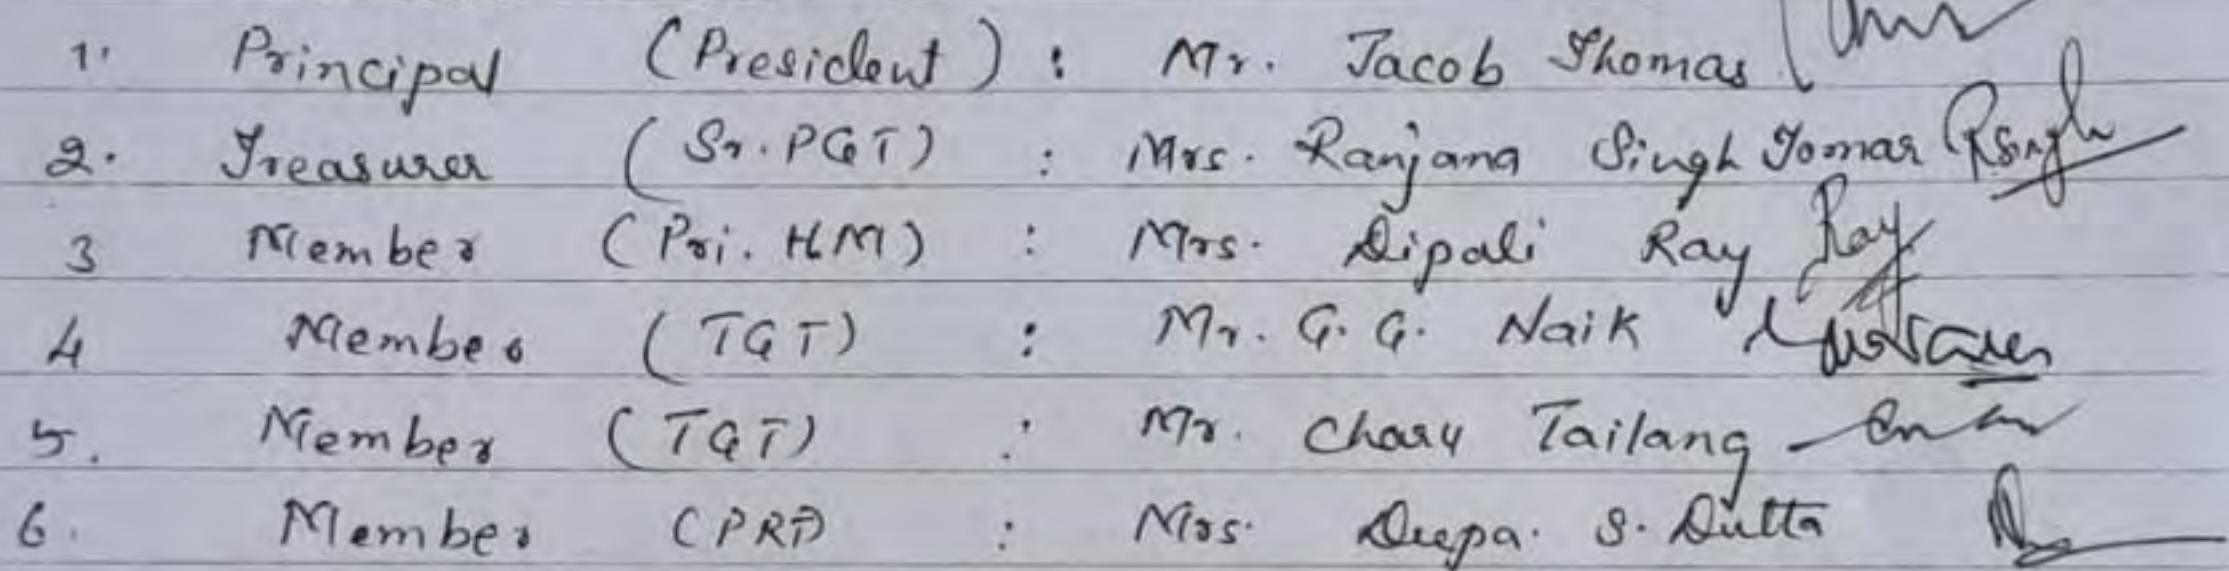 1. Principal (President) : Mr. Jacob Thomas
2. Treasurer (Sr. PGT) : Mrs. Ranjana Singh Tomar RSingh
3 Member (Pri. HM) : Mrs. Dipali Ray Ray
4 Member (TGT) : Mr. G. G. Naik
5. Member (TGT) : Mr. Charu Tailang
6. Member (PRT) : Mrs. Deepa. S. Dutta